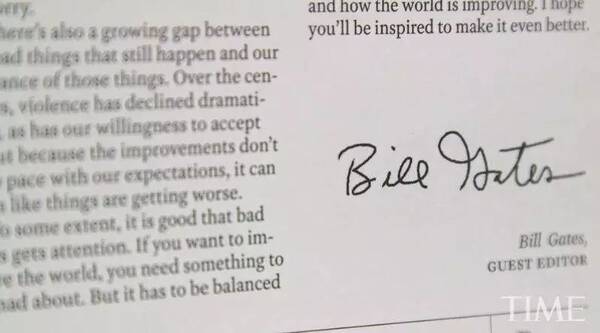 here's also a growing gap between
bad things that still happen and our
ance of those things. Over the cen-
s, violence has declined dramati-
, as has our willingness to accept
at because the improvements don't
pace with our expectations, it can
like things are getting worse.
o some extent, it is good that bad
s gets attention. If you want to im-
e the world, you need something to
mad about. But it has to be balanced
and how the world is improving. I hope
you'll be inspired to make it even better.
Bill Gates
Bill Gates,
GUEST EDITOR
TIME